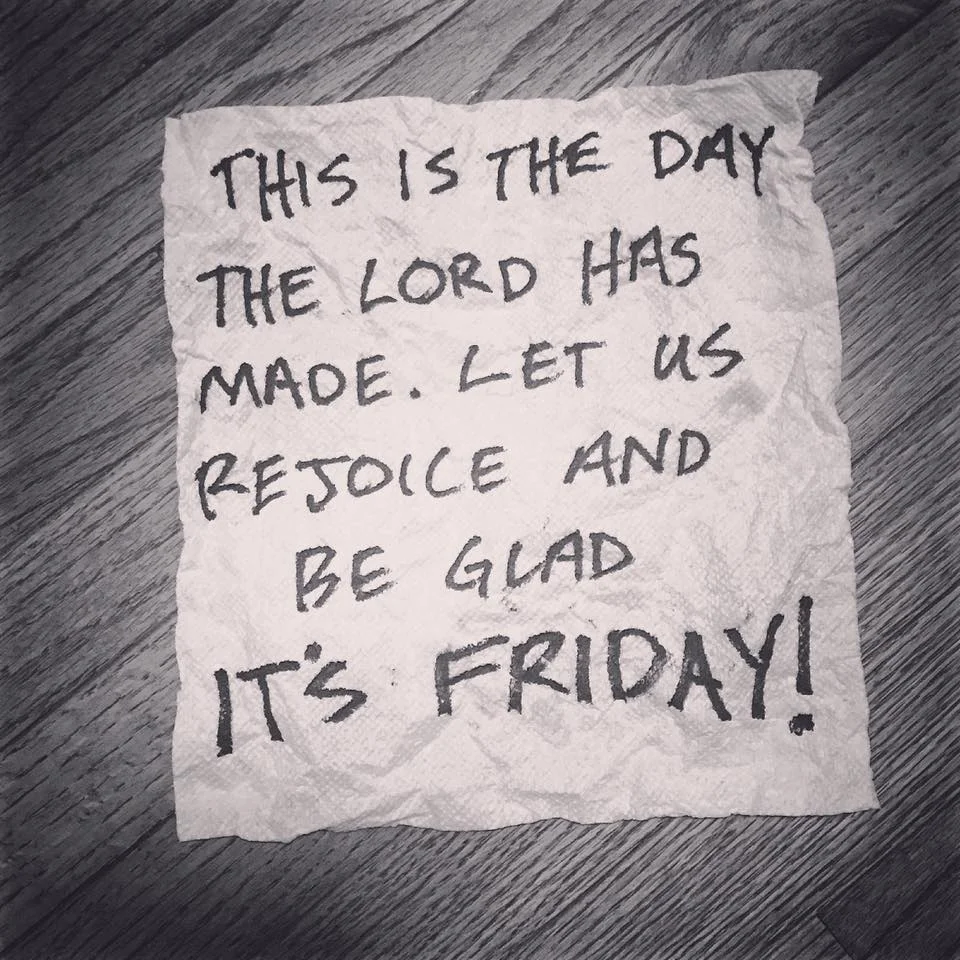 THIS IS THE DAY
THE LORD HAS
MADE. LET US
REJOICE AND
BE GLAD
IT'S FRIDAY!